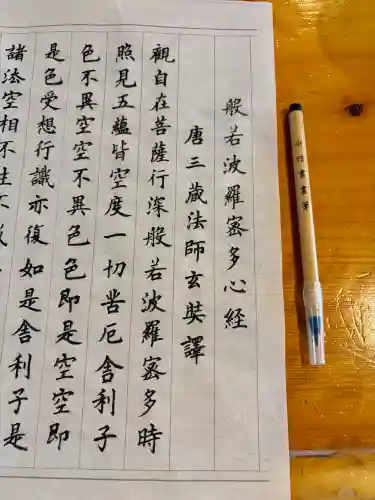 般若波羅密多心經
唐三蔵法師玄奘譯
觀自在菩薩行深般若波羅密多時
照見五蘊皆空度一切苦厄舎利子
色不異空空不異色色即是空空即
是色受想行識亦復如是舎利子是
諸法空相不生不